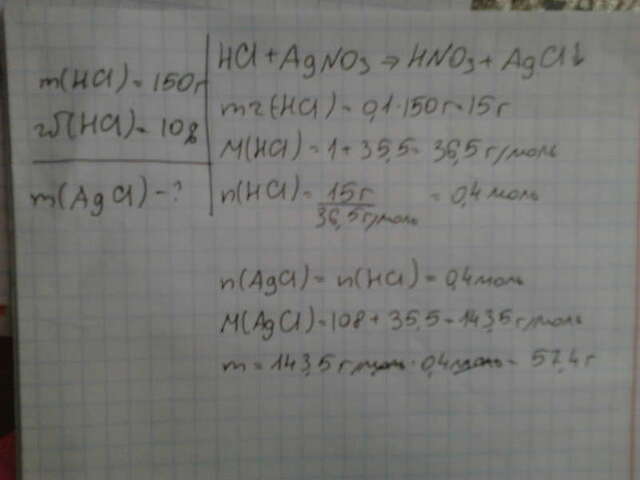 m(HCl) = 150г
ω(HCl) = 10%
m(AgCl) - ?
HCl + AgNO₃ ⇒ HNO₃ + AgCl↓
mч(HCl) = 0,1·150г = 15г
M(HCl) = 1 + 35,5 = 36,5 г/моль
n(HCl) = 15г / 36,5г/моль = 0,4 моль
n(AgCl) = n(HCl) = 0,4 моль
M(AgCl) = 108 + 35,5 = 143,5 г/моль
m = 143,5 г/моль · 0,4 моль = 57,4 г